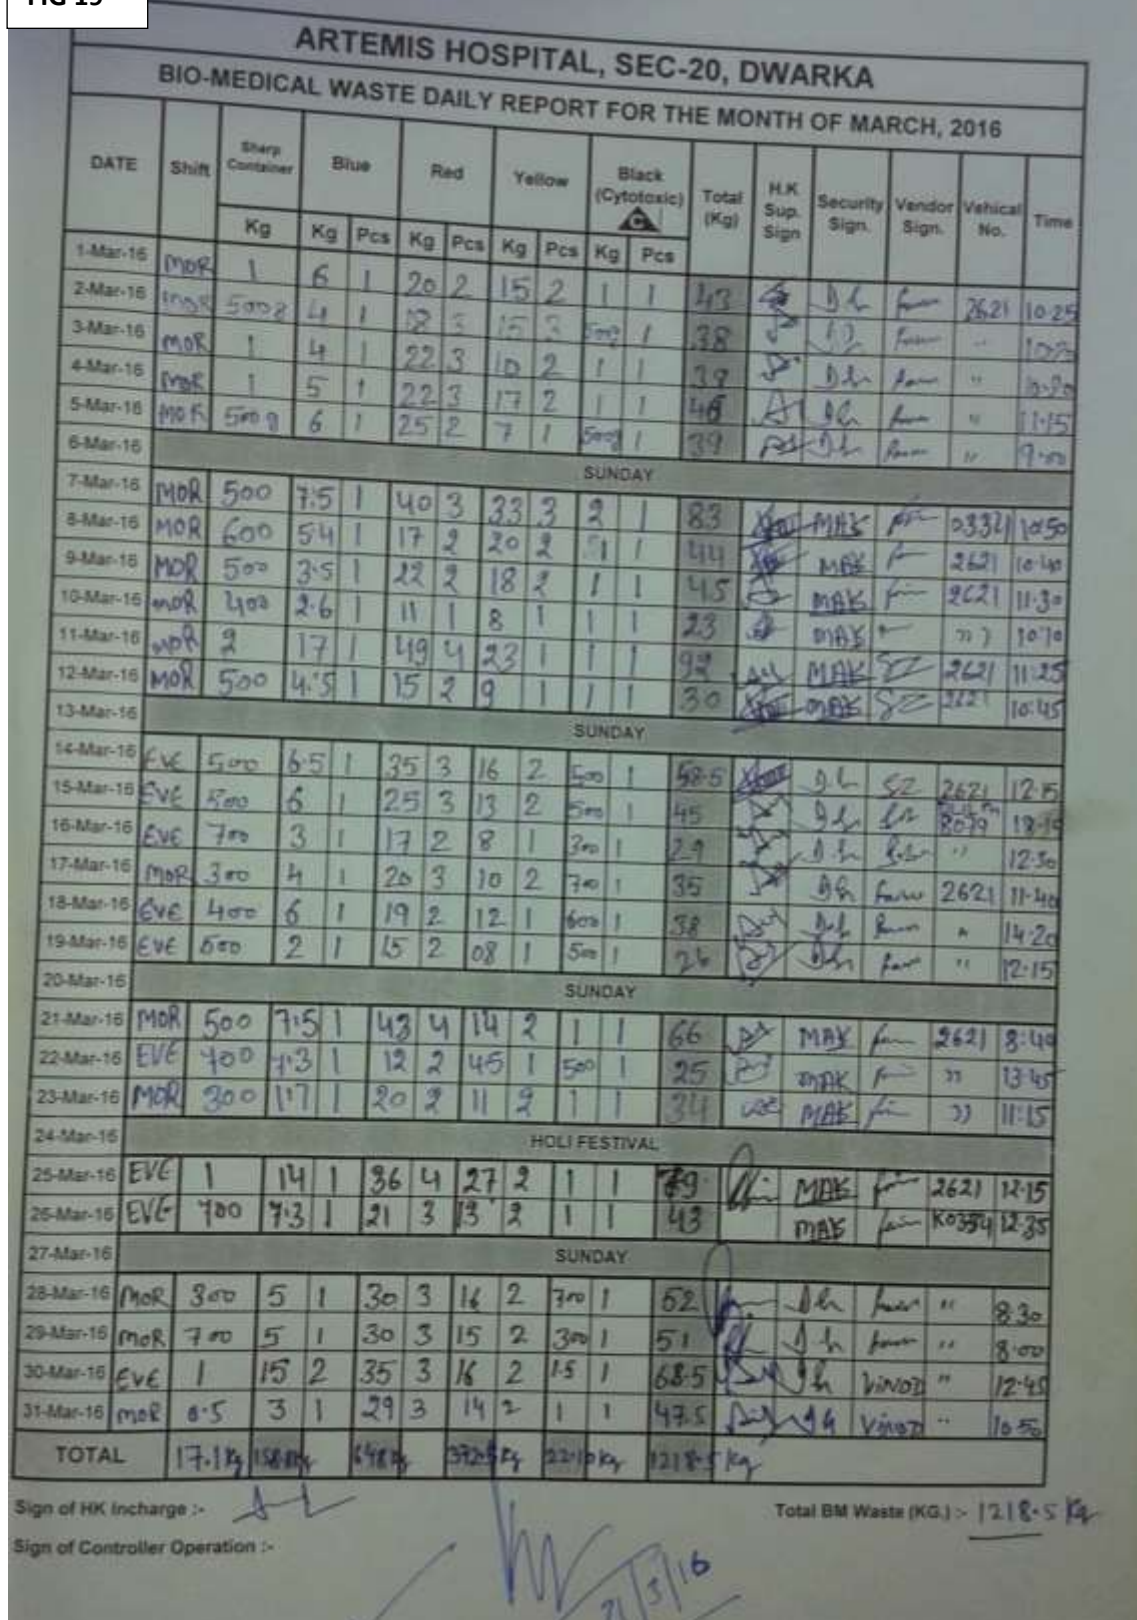 FIG 19
ARTEMIS HOSPITAL, SEC-20, DWARKA
BIO-MEDICAL WASTE DAILY REPORT FOR THE MONTH OF MARCH, 2016
DATE Shift Sharp Container Blue Red Yellow Black (Cytotoxic) C Total (Kg) H.K Sup. Sign Security Sign. Vendor Sign. Vehical No. Time
Kg Kg Pcs Kg Pcs Kg Pcs Kg Pcs
1-Mar-16 MOR 1 6 1 20 2 15 2 1 1 43 2621 10:25
2-Mar-16 MOR 500g 4 1 18 3 15 3 500g 1 38 "
3-Mar-16 MOR 1 4 1 22 3 10 2 1 1 39 "
4-Mar-16 MOR 1 5 1 22 3 17 2 1 1 46 " 11:15
5-Mar-16 MOR 500g 6 1 25 2 7 1 500g 1 39 " 9:00
6-Mar-16 SUNDAY
7-Mar-16 MOR 500 7.5 1 40 3 33 3 2 1 83 MAK 03321 10:50
8-Mar-16 MOR 600 5.4 1 17 2 20 2 1 1 44 MAK 2621 10:40
9-Mar-16 MOR 500 3.5 1 22 2 18 2 1 1 45 MAK 2621 11:30
10-Mar-16 MOR 400 2.6 1 11 1 8 1 1 1 23 MAK "
11-Mar-16 MOR 2 17 1 49 4 23 1 1 1 92 MAK SZ 2621 11:25
12-Mar-16 MOR 500 4.5 1 15 2 9 1 1 1 30 MAK SZ 2621 10:45
13-Mar-16 SUNDAY
14-Mar-16 EVE 500 6.5 1 35 3 16 2 500 1 58.5 SZ 2621 12:15
15-Mar-16 EVE 500 6 1 25 3 13 2 500 1 45
16-Mar-16 EVE 700 3 1 17 2 8 1 300 1 29 " 12:30
17-Mar-16 MOR 300 4 1 20 3 10 2 700 1 35 2621 11:40
18-Mar-16 EVE 400 6 1 19 2 12 1 600 1 38 " 14:20
19-Mar-16 EVE 500 2 1 15 2 08 1 500 1 26 " 12:15
20-Mar-16 SUNDAY
21-Mar-16 MOR 500 7.5 1 43 4 14 2 1 1 66 MAK 2621 8:40
22-Mar-16 EVE 700 7.3 1 12 2 45 1 500 1 25 MAK " 13:45
23-Mar-16 MOR 300 1.7 1 20 2 11 2 1 1 34 MAK " 11:15
24-Mar-16 HOLI FESTIVAL
25-Mar-16 EVE 1 14 1 36 4 27 2 1 1 79 MAK 2621 12:15
26-Mar-16 EVE 700 7.3 1 21 3 13 2 1 1 43 MAK K0354 12:35
27-Mar-16 SUNDAY
28-Mar-16 MOR 300 5 1 30 3 16 2 700 1 52 " 8:30
29-Mar-16 MOR 700 5 1 30 3 15 2 300 1 51 " 8:00
30-Mar-16 EVE 1 15 2 35 3 16 2 1.5 1 68.5 VINOD " 12:45
31-Mar-16 MOR 0.5 3 1 29 3 14 2 1 1 47.5 VINOD " 10:50
TOTAL 17.1 Kg 648 Kg 1218.5 Kg
Sign of HK Incharge :- Total BM Waste (KG.) :- 1218.5 Kg
Sign of Controller Operation :-